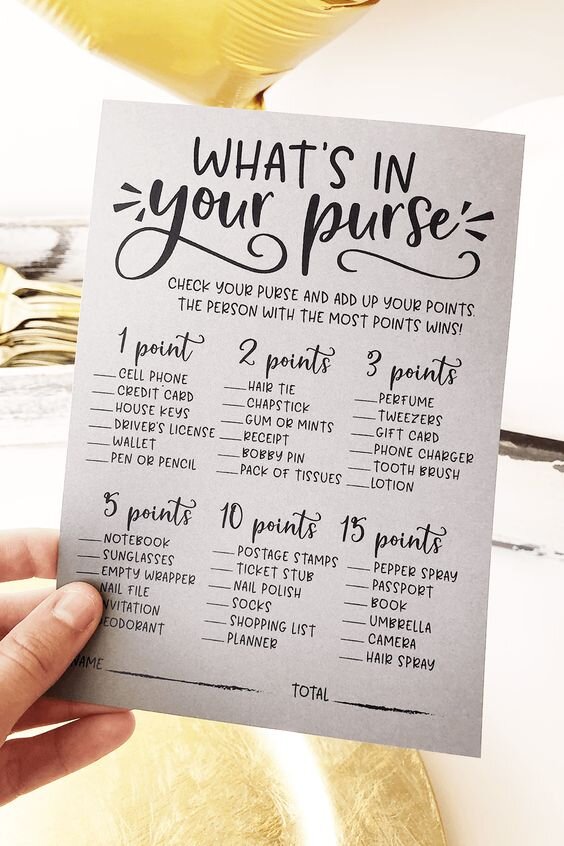 WHAT'S IN
your purse
CHECK YOUR PURSE AND ADD UP YOUR POINTS.
THE PERSON WITH THE MOST POINTS WINS!
1 point
CELL PHONE
CREDIT CARD
HOUSE KEYS
DRIVER'S LICENSE
WALLET
PEN OR PENCIL
2 points
HAIR TIE
CHAPSTICK
GUM OR MINTS
RECEIPT
BOBBY PIN
PACK OF TISSUES
3 points
PERFUME
TWEEZERS
GIFT CARD
PHONE CHARGER
TOOTH BRUSH
LOTION
5 points
NOTEBOOK
SUNGLASSES
EMPTY WRAPPER
NAIL FILE
NVITATION
EODORANT
10 points
POSTAGE STAMPS
TICKET STUB
NAIL POLISH
SOCKS
SHOPPING LIST
PLANNER
15 points
PEPPER SPRAY
PASSPORT
BOOK
UMBRELLA
CAMERA
HAIR SPRAY
NAME
TOTAL